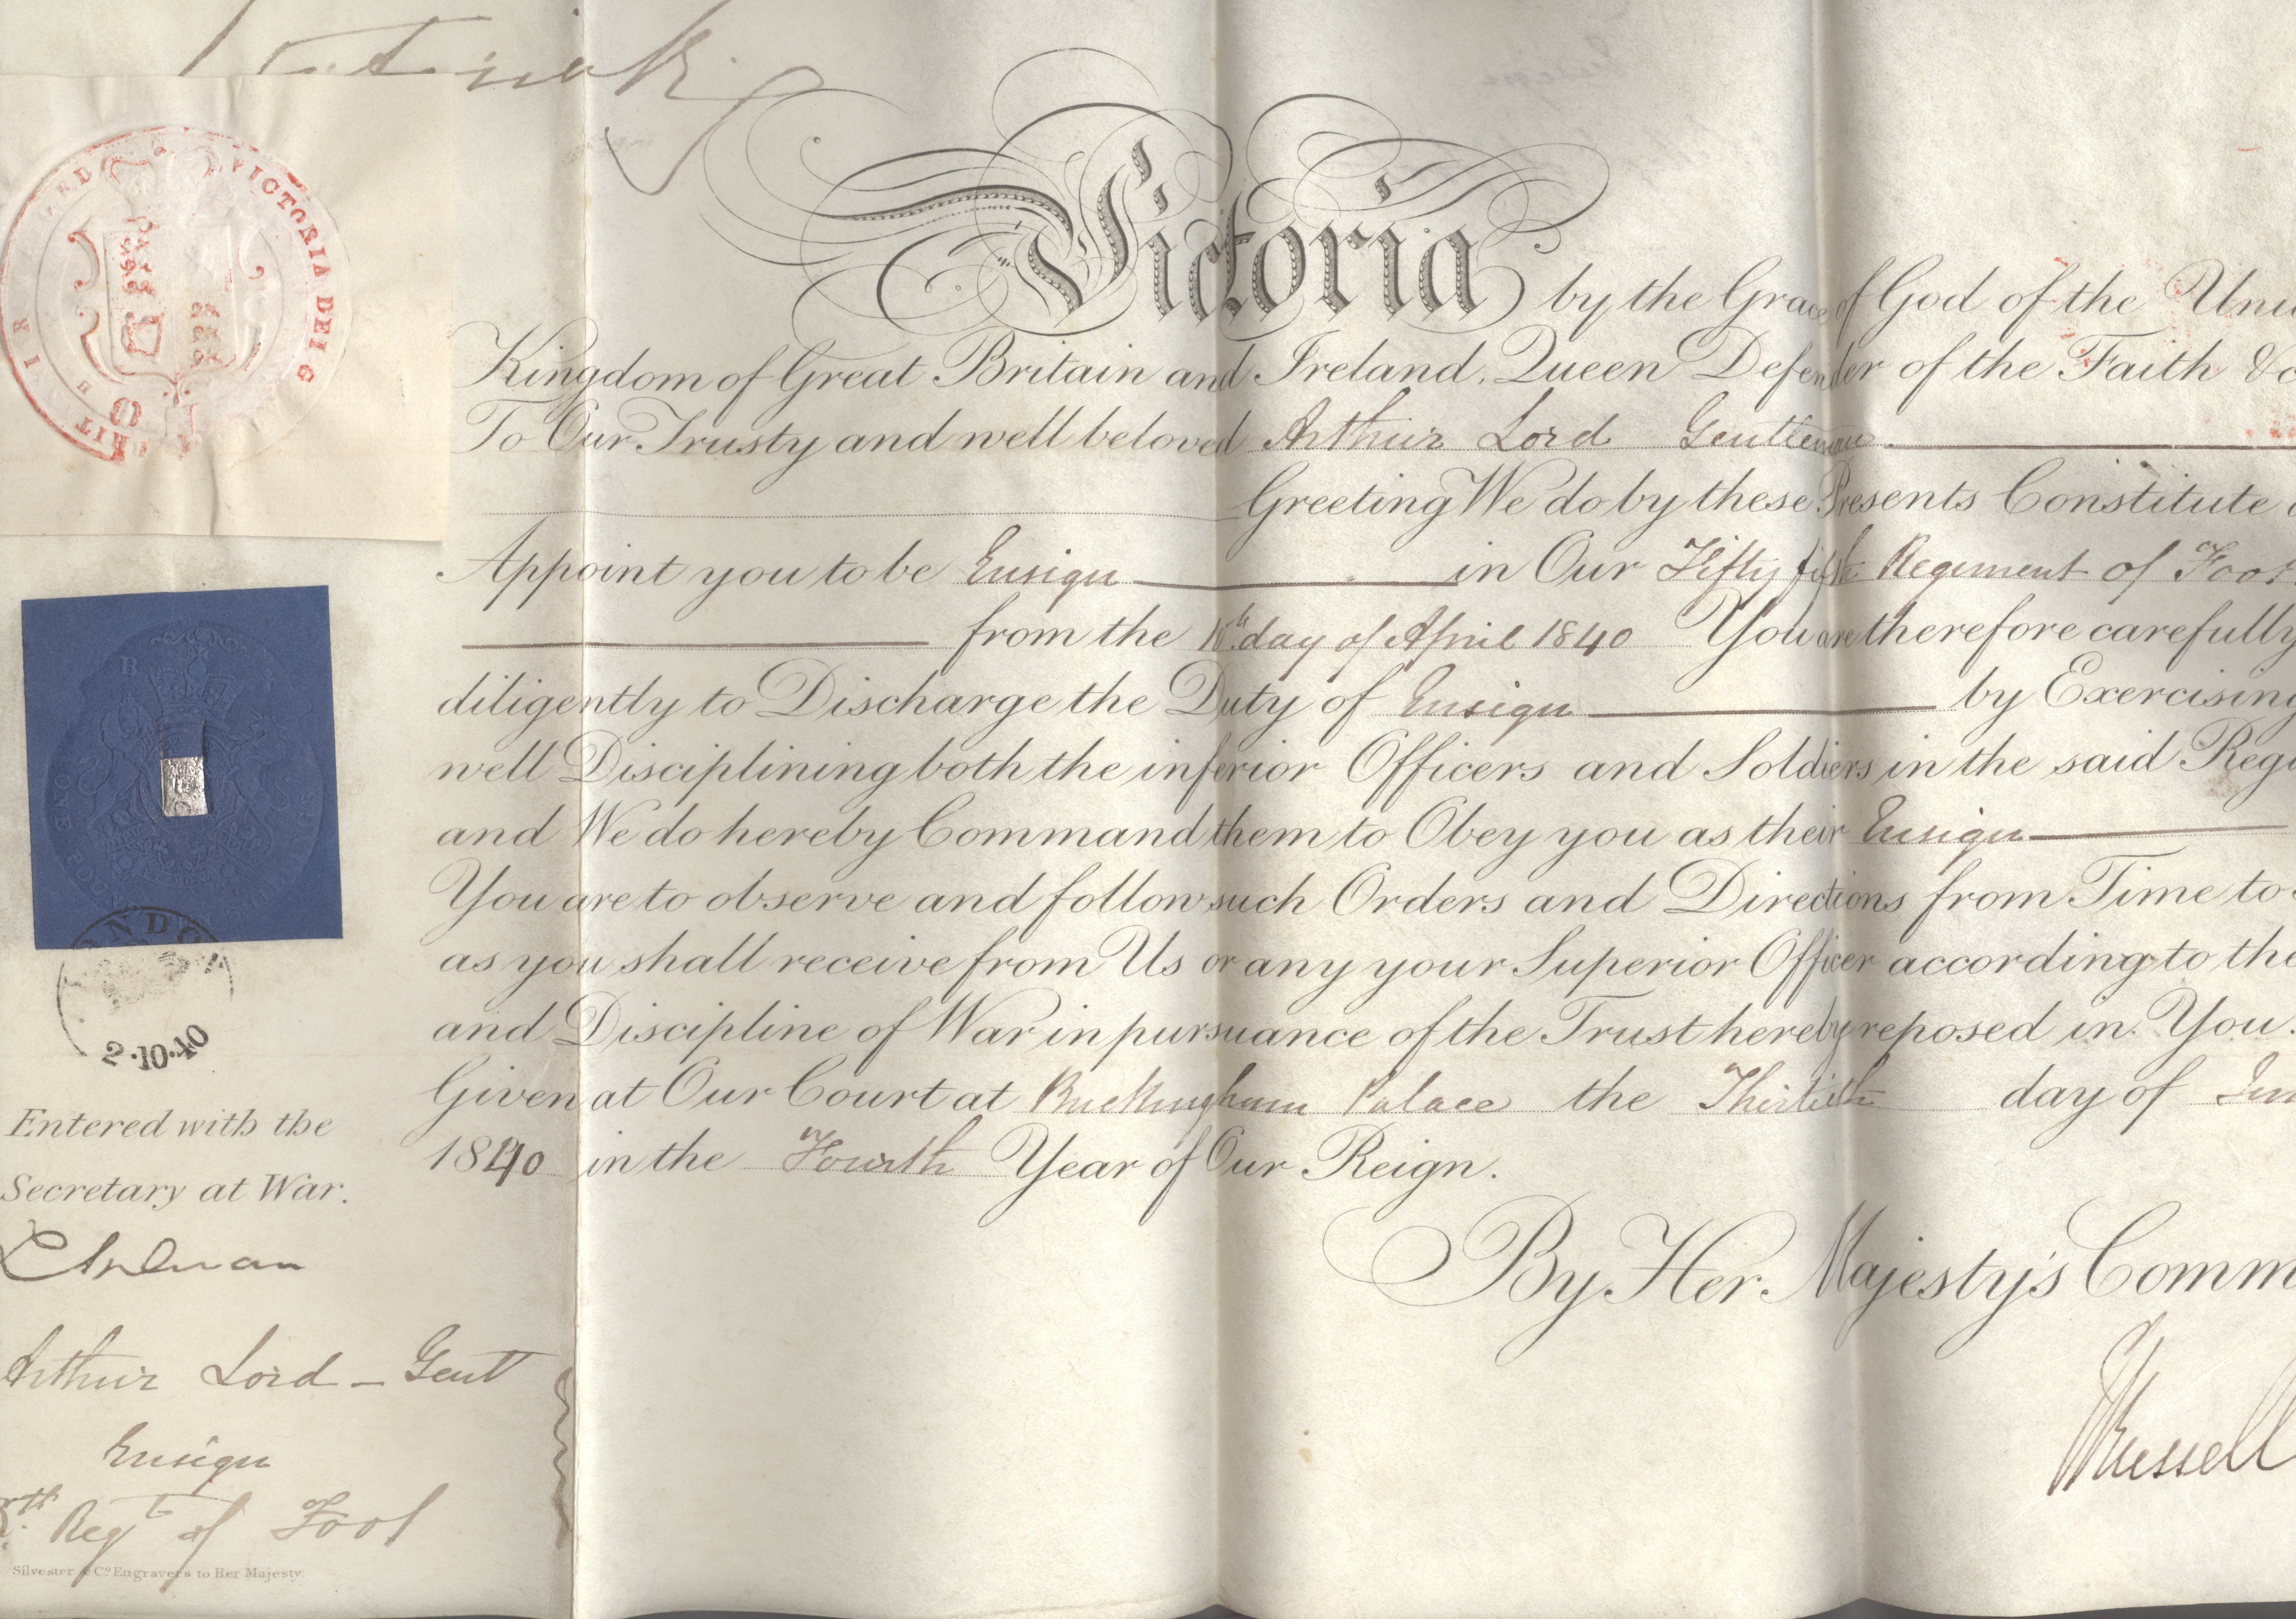 VICTORIA DEI G
BRIT
Victoria by the Grace of God of the Uni
Kingdom of Great Britain and Ireland, Queen Defender of the Faith &c
To Our Trusty and well beloved Arthur Lord Gentleman.
Greeting We do by these Presents Constitute
Appoint you to be Ensign in Our Fifty fifth Regiment of Foot
from the day of April 1840 You are therefore carefully
diligently to Discharge the Duty of Ensign by Exercising
well Disciplining both the inferior Officers and Soldiers in the said Regi
and We do hereby Command them to Obey you as their Ensign
You are to observe and follow such Orders and Directions from Time to
as you shall receive from Us or any your Superior Officer according to the
and Discipline of War in pursuance of the Trust hereby reposed in You.
Given at Our Court at Buckingham Palace the Thirtieth day of Jun
1840 in the Fourth Year of Our Reign.
By Her Majesty's Comm
JRussell
ONE
LONDON
2·10·40
Entered with the
Secretary at War.
Arthur Lord - Gent
Ensign
th Regt of Foot
Silvester & Co. Engravers to Her Majesty.